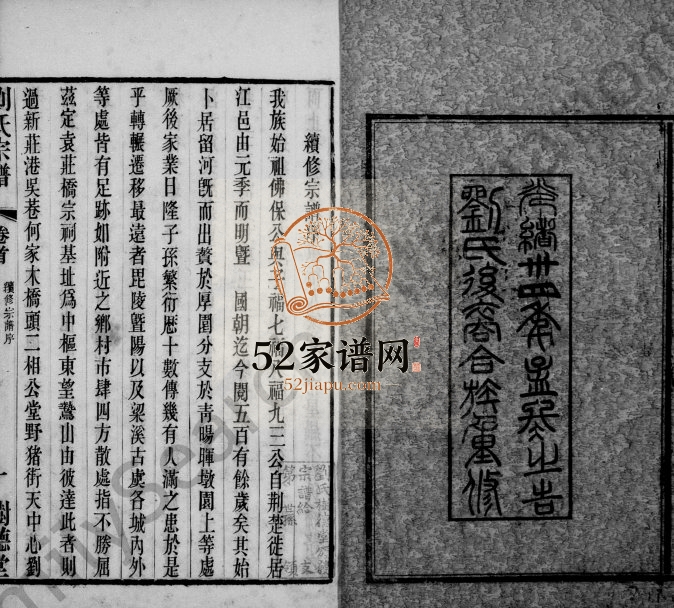 光緒卅四年孟冬之吉
劉氏後裔合族重修
續修宗譜
我族始祖佛保公與子福七福八福九三公自荆楚徙居
江邑由元季而明暨 國朝迄今閱五百有餘歲矣其始
卜居留河旣而出贅於厚圍分支於靑暘暉墩園上等處
厥後家業日隆子孫繁衍歷十數傳幾有人滿之患於是
乎轉輾遷移最遠者毘陵曁陽以及梁溪古虞各城內外
等處皆有足跡如附近之鄉村市肆四方散處指不勝屈
茲定袁莊橋宗祠基址爲中樞東望鵞山由彼達此者則
過新莊港吳巷何家木橋頭二相公堂野猪街天中心劉
劉氏宗譜
卷首
續修宗譜序
一
樹德堂
52家谱网
52jiapu.com